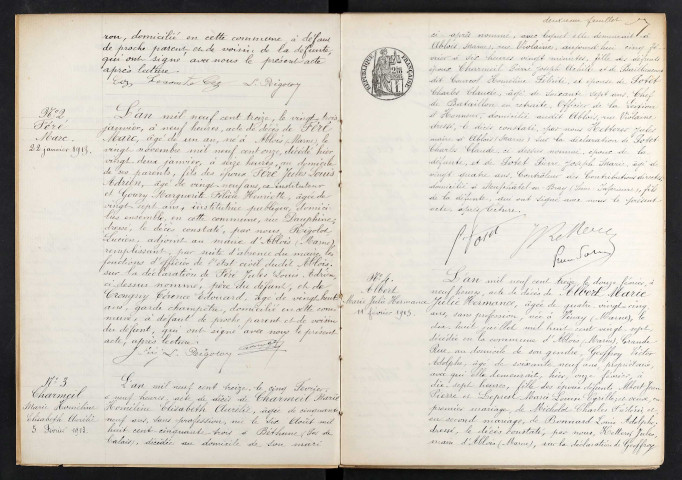 ron, domiciliée en cette commune, à défaut
de proche parent, et de voisin de la défunte,
qui ont signé avec nous le présent acte
après lecture.
N° 2
Féré
Marc
22 janvier 1913.
L'an mil neuf cent treize, le vingt trois
janvier, à neuf heures, acte de décès de Féré
Marc, âgé de un an, né à Ablois (Marne), le
vingt novembre mil neuf cent onze, décédé hier
vingt deux janvier, à seize heures, au domicile
de ses parents, fils des époux Féré Jules Louis
Adrien, âgé de vingt-neuf ans, instituteur
et Marguerite Henriette, âgée de
vingt-sept ans, institutrice publique, domici-
liés ensemble, en cette commune, rue Dauphine,
dressé, le décès constaté, par nous, Bigolot
Lucien, adjoint au maire d'Ablois (Marne)
remplissant, par suite d'absence du maire, les
fonctions d'officier de l'état civil dudit Ablois,
sur la déclaration de Féré Jules Louis Adrien,
ci-dessus nommé, père du défunt, et de
Édouard, âgé de vingt-huit
ans, garde champêtre, domicilié en cette com-
mune, à défaut de proche parent et de voisin
du défunt, qui ont signé avec nous le présent
acte, après lecture.
N° 3
Charmeil
Marie Herméline
Elisabeth Aurélie
5 Février 1913.
L'an mil neuf cent treize, le cinq février,
à neuf heures, acte de décès de Charmeil Marie
Herméline Elisabeth Aurélie, âgée de cinquante
neuf ans, sans profession, née le six août mil
huit cent cinquante trois à Béthune (Pas de
Calais), décédée au domicile de son mari
deuxième feuillet
RÉPUBLIQUE FRANÇAISE
ci-après nommé, avec lequel elle demeurait à
Ablois (Marne), rue Violaine, aujourd'hui cinq fé-
vrier à six heures vingt minutes, fille des défunts
époux Charmeil
et épouse de Potet
Charles Claude, âgé de soixante sept ans, Chef
de Bataillon en retraite, Officier de la Légion
d'Honneur, domicilié audit Ablois, rue Violaine,
dressé, le décès constaté, par nous, Jules
maire d'Ablois (Marne), sur la déclaration de Potet
Charles Claude, ci-dessus nommé, époux de la
défunte, et de Potet Pierre Joseph Marie, âgé de
vingt quatre ans, Contrôleur des Contributions directes,
domicilié à Neufchâtel en Bray (Seine Inférieure), fils
de la défunte, qui ont signé avec nous le présent
acte, après lecture.
N° 4
Albert
Marie Julie Hermance
11 février 1913.
L'an mil neuf cent treize, le douze février, à
neuf heures, acte de décès de Albert Marie
Julie Hermance, âgée de quatre-vingt-cinq
ans, sans profession, née à Vinay (Marne), le
dix huit juillet mil huit cent vingt sept,
décédée en la commune d'Ablois (Marne), Grande
Rue, au domicile de son gendre, Geoffroy Victor
Adolphe, âgé de soixante neuf ans, propriétaire,
avec qui elle demeurait, hier, onze février, à
dix sept heures, fille des époux défunts Albert Jean
Pierre et Marie Louise, veuve, en
premier mariage, de Michelet Charles et
en second mariage, de Bonnard Louis Adolphe,
dressé, le décès constaté, par nous, Jules,
maire d'Ablois (Marne), sur la déclaration de Geoffroy